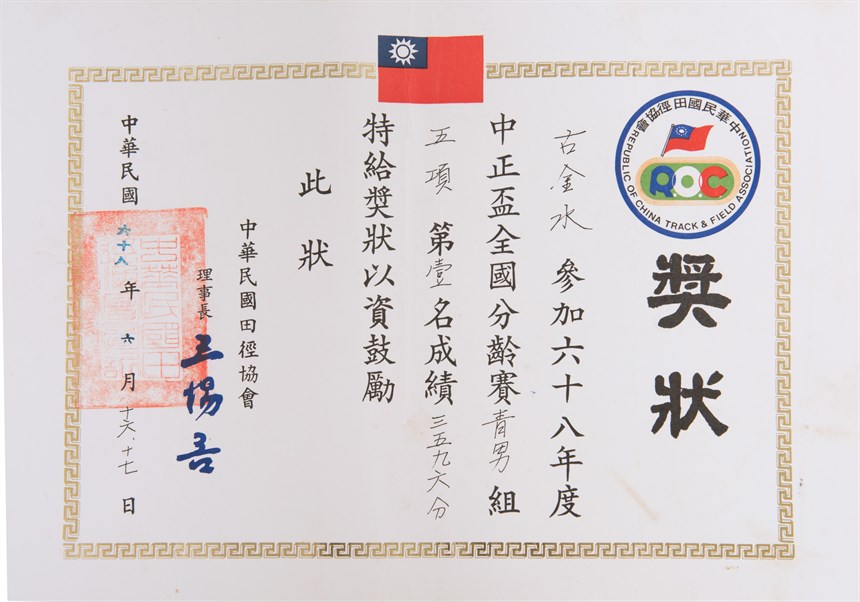 中華民國田徑協會
REPUBLIC OF CHINA TRACK & FIELD ASSOCIATION
ROC
獎狀
古金水 參加六十八年度
中正盃全國分齡賽青男組
五項 第壹名成績三五九六分
特給獎狀以資鼓勵
此狀
中華民國田徑協會
理事長 王惕吾
中華民國六十八年六月十六.十七日